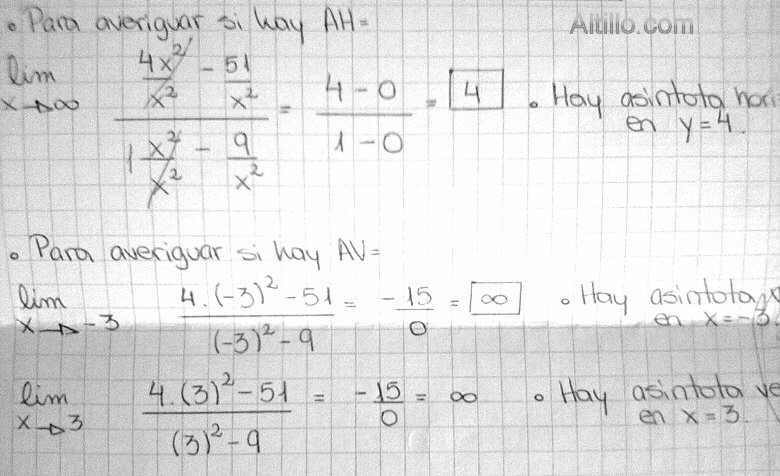 • Para averiguar si hay AH=
Altillo.com
lim x→∞ (4x²/x² - 51/x²) / (1x²/x² - 9/x²) = (4 - 0) / (1 - 0) = 4 • Hay asintota hori
en y=4.
• Para averiguar si hay AV=
lim x→-3 (4.(-3)² - 51) / ((-3)² - 9) = -15/0 = ∞ • Hay asintota
en x=-3.
lim x→3 (4.(3)² - 51) / ((3)² - 9) = -15/0 = ∞ • Hay asintota ve
en x=3.